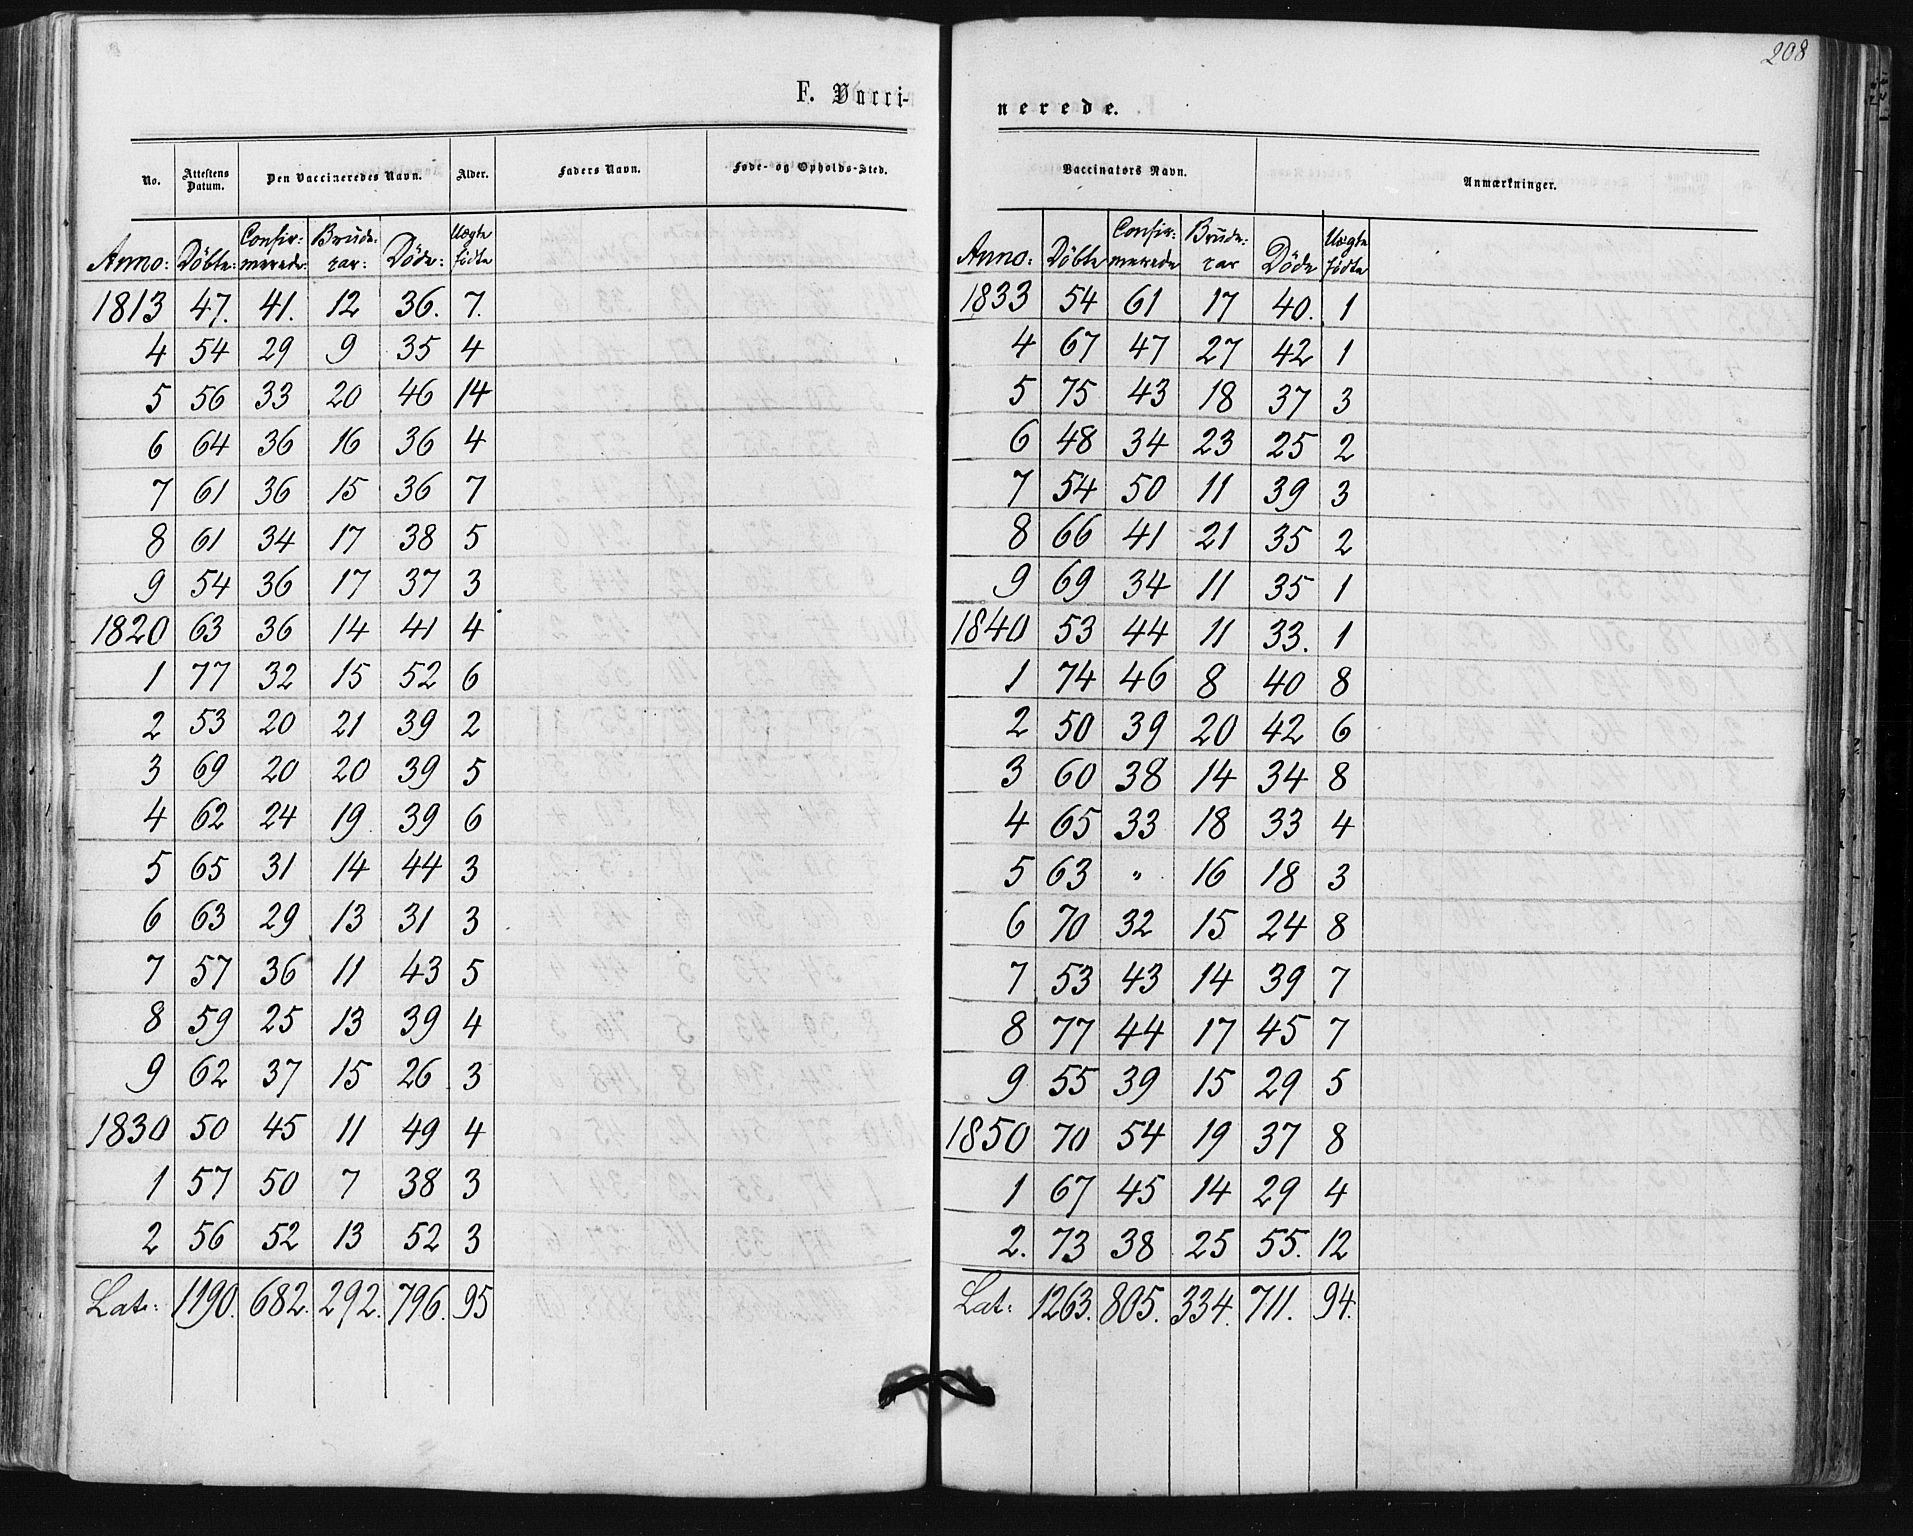 208
F. Vacci-
nerede.
No. Attestens Datum. Den Vaccineredes Navn. Alder. Faders Navn. Føde- og Opholds-Sted.
Anno: Döbte: Confir-merede: Brude-par: Döde: Uægte fødte
1813 47. 41. 12 36. 7.
4 54 29 9 35 4
5 56 33 20 46 14
6 64 36 16 36 4
7 61 36 15 36 7
8 61 34 17 38 5
9 54 36 17 37 3
1820 63 36 14 41 4
1 77 32 15 52 6
2 53 20 21 39 2
3 69 20 20 39 5
4 62 24 19 39 6
5 65 31 14 44 3
6 63 29 13 31 3
7 57 36 11 43 5
8 59 25 13 39 4
9 62 37 15 26 3
1830 50 45 11 49 4
1 57 50 7 38 3
2 56 52 13 52 3
Lat: 1190. 682. 292. 796. 95
Vaccinators Navn. Anmærkninger.
Anno: Döbte Confir-merede Brude-par Döde Uægte fødte
1833 54 61 17 40. 1
4 67 47 27 42 1
5 75 43 18 37 3
6 48 34 23 25 2
7 54 50 11 39 3
8 66 41 21 35 2
9 69 34 11 35 1
1840 53 44 11 33. 1
1 74 46 8 40 8
2 50 39 20 42 6
3 60 38 14 34 8
4 65 33 18 33 4
5 63 " 16 18 3
6 70 32 15 24 8
7 53 43 14 39 7
8 77 44 17 45 7
9 55 39 15 29 5
1850 70 54 19 37 8
1 67 45 14 29 4
2. 73 38 25 55. 12
Lat: 1263. 805. 334. 711. 94.